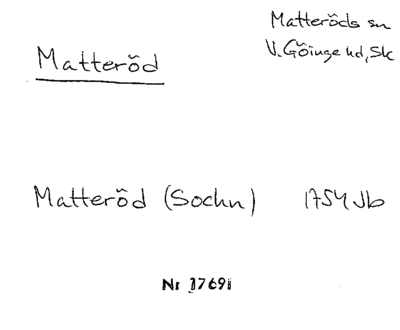 Matteröds sn
V. Göinge hd, Sk
Matteröd
Matteröd (Sochn) 1754 Jb
Nr 17691